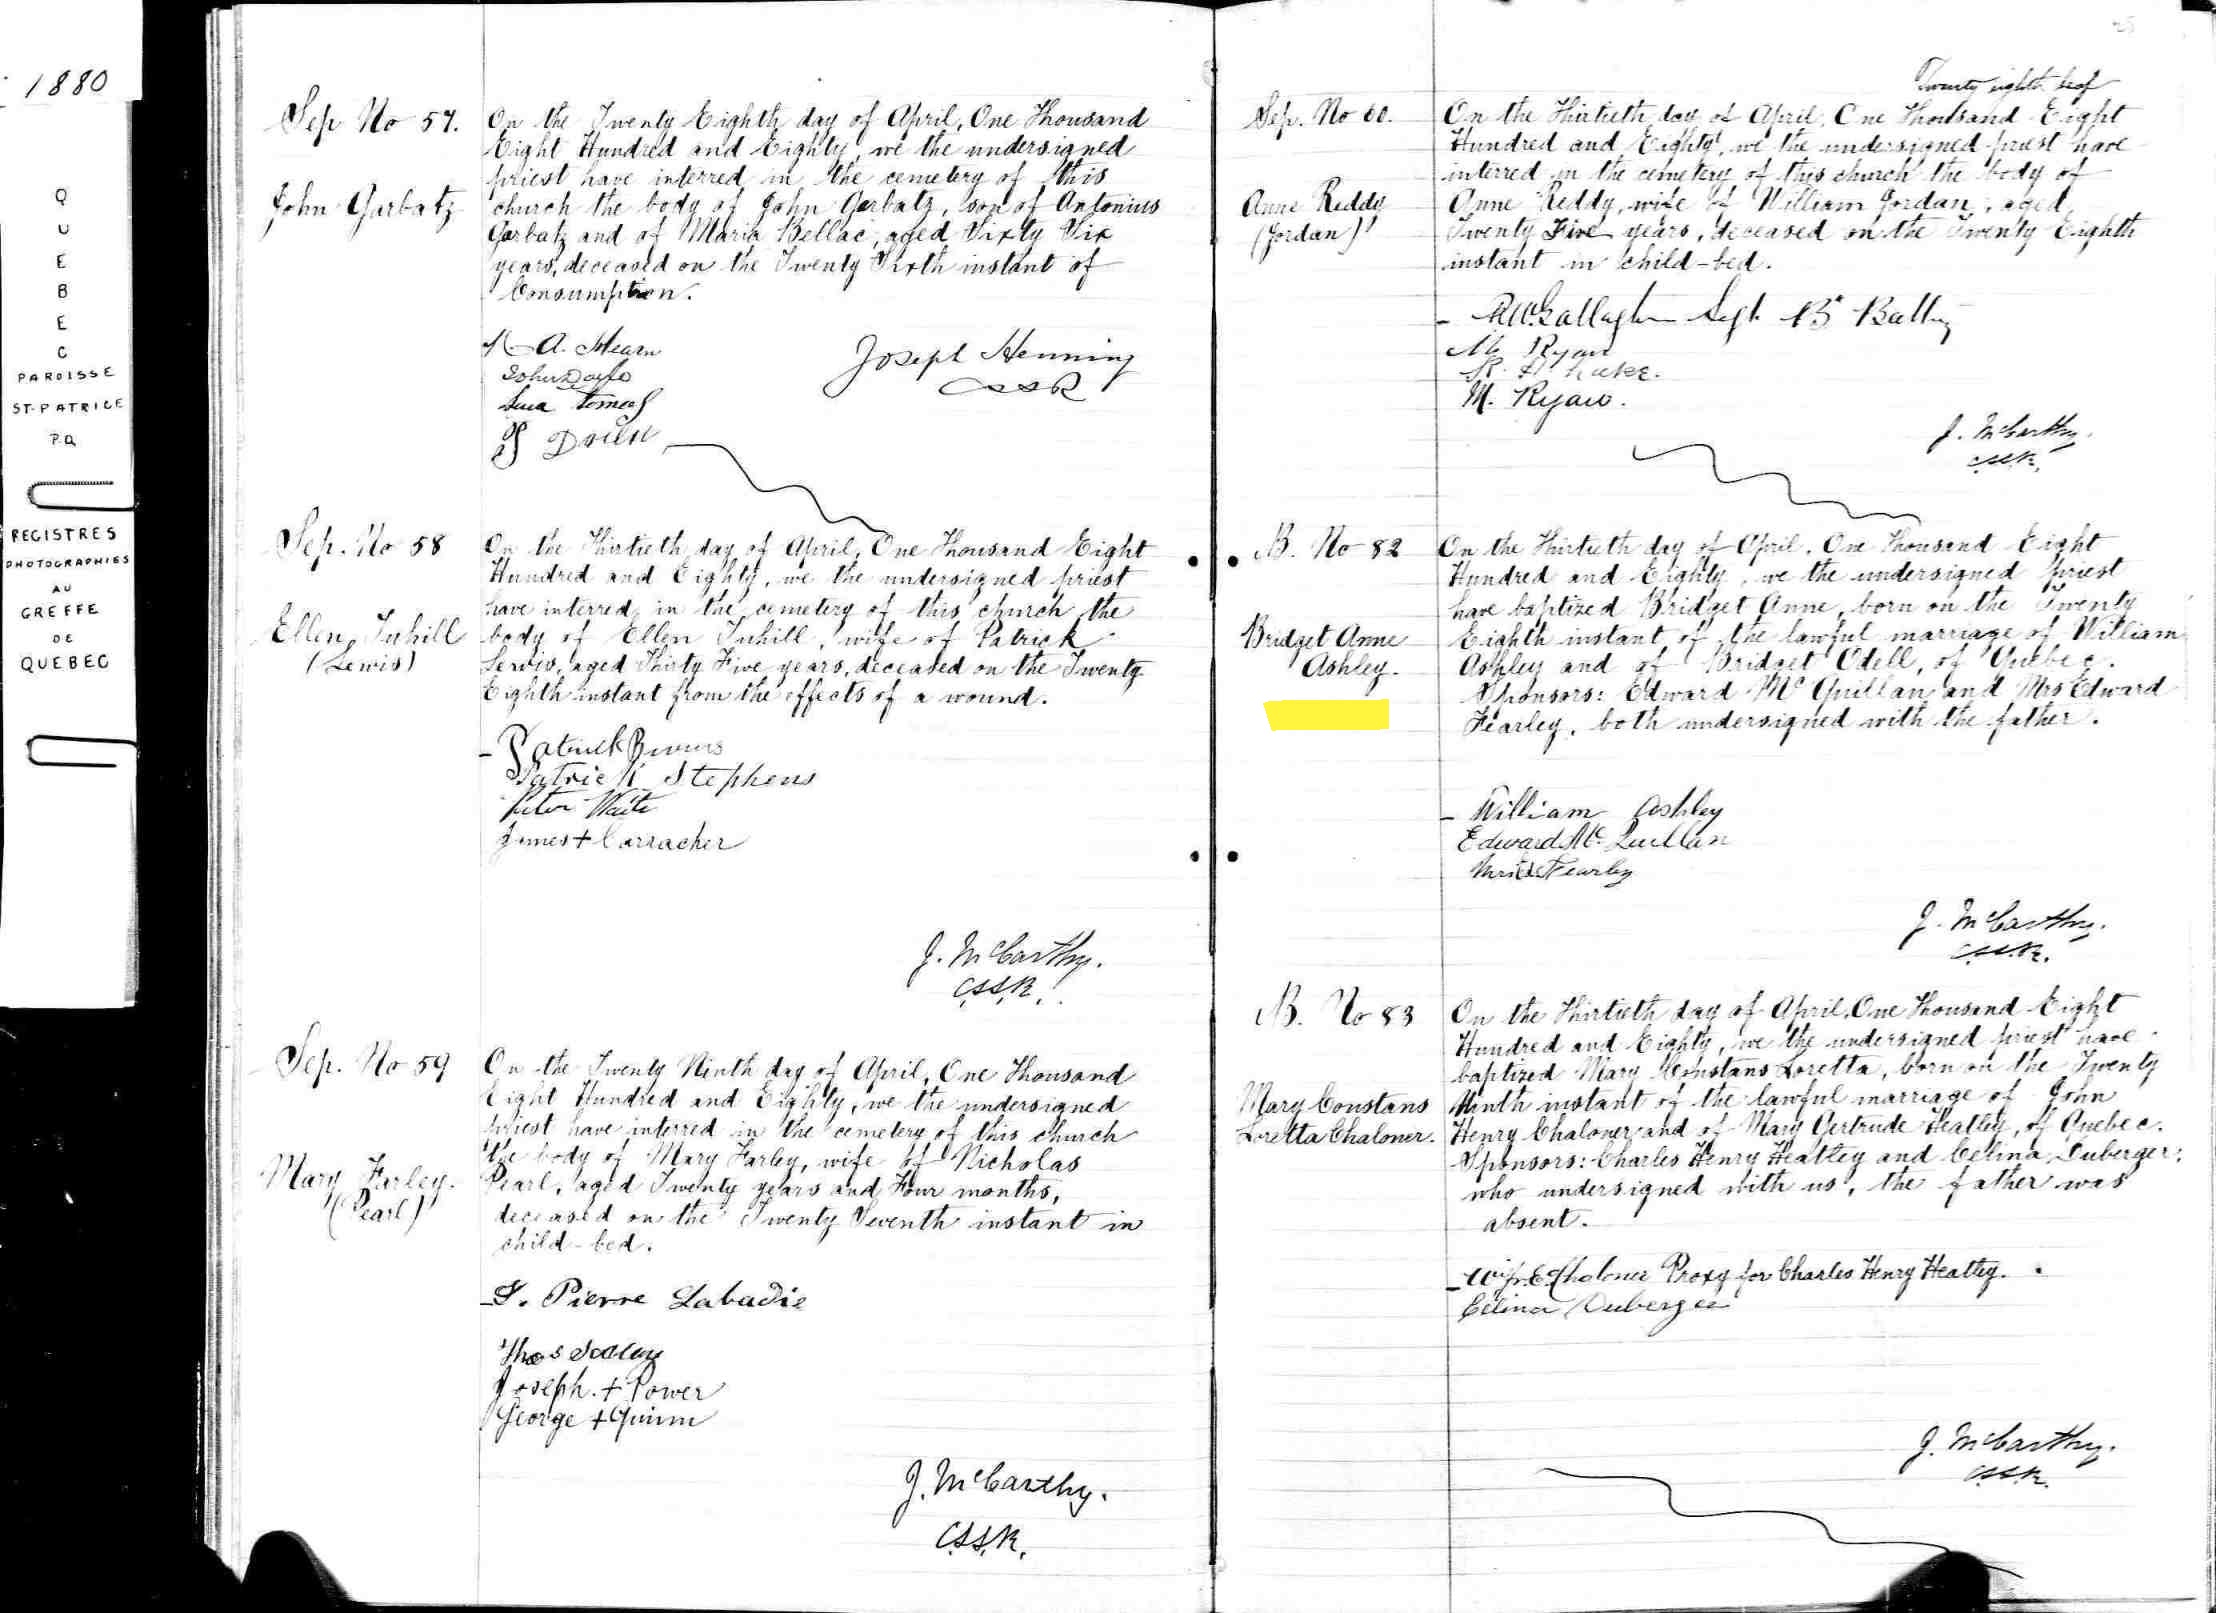 1880
QUEBEC
PAROISSE
ST-PATRICE
P.Q
REGISTRES
PHOTOGRAPHIES
AU
GREFFE
DE
QUEBEC
Sep No 57.
John Garbatz
On the Twenty Eighth day of April, One Thousand
Eight Hundred and Eighty, we the undersigned
priest have interred in the cemetery of this
church the body of John Garbatz, son of Antonius
Garbatz and of Maria Bellac, aged Sixty Six
years, deceased on the Twenty Sixth instant of
Consumption.
A. Hearn
John Doyle
Joseph Henning
CSSR
Sep. No 58
Ellen Tuhill
(Lewis)
On the Thirtieth day of April, One Thousand Eight
Hundred and Eighty, we the undersigned priest
have interred in the cemetery of this church the
body of Ellen Tuhill, wife of Patrick
Lewis, aged Thirty Five years, deceased on the Twenty
Eighth instant from the effects of a wound.
Patrick
Patrick Stephens
Peter Waite
James + Carracher
J. McCarthy.
C.S.S.R.
Sep. No 59
Mary Farley.
(Pearl)
On the Twenty Ninth day of April, One Thousand
Eight Hundred and Eighty, we the undersigned
priest have interred in the cemetery of this church
the body of Mary Farley, wife of Nicholas
Pearl, aged Twenty years and Four months,
deceased on the Twenty Seventh instant in
child-bed.
Pierre Labadie
Thos
Joseph + Power
George + Quinn
J. McCarthy.
C.S.S.R.
Twenty eighth leaf
Sep. No 60.
Anne Reddy
(Jordan)
On the Thirtieth day of April, One Thousand Eight
Hundred and Eighty, we the undersigned priest have
interred in the cemetery of this church the body of
Anne Reddy, wife of William Jordan, aged
Twenty Five years, deceased on the Twenty Eighth
instant in child-bed.
Gallagher Sergt B Batty
M. Ryan
M. Ryan.
J. McCarthy.
C.S.S.R.
B. No 82
Bridget Anne
Ashley.
On the Thirtieth day of April, One Thousand Eight
Hundred and Eighty, we the undersigned priest
have baptized Bridget Anne, born on the Twenty
Eighth instant of the lawful marriage of William
Ashley and of Bridget Odell, of Quebec.
Sponsors: Edward McQuillan and Mrs Edward
Fearley, both undersigned with the father.
William Ashley
Edward McQuillan
Mrs Ed Fearley
J. McCarthy.
C.S.S.R.
B. No 83
Mary Constans
Loretta Chaloner.
On the Thirtieth day of April, One Thousand Eight
Hundred and Eighty, we the undersigned priest have
baptized Mary Constans Loretta, born on the Twenty
Ninth instant of the lawful marriage of John
Henry Chaloner and of Mary Gertrude Heatley, of Quebec.
Sponsors: Charles Henry Heatley and Celina Duberger,
who undersigned with us, the father was
absent.
Chaloner Proxy for Charles Henry Heatley.
Celina Duberger
J. McCarthy.
C.S.S.R.